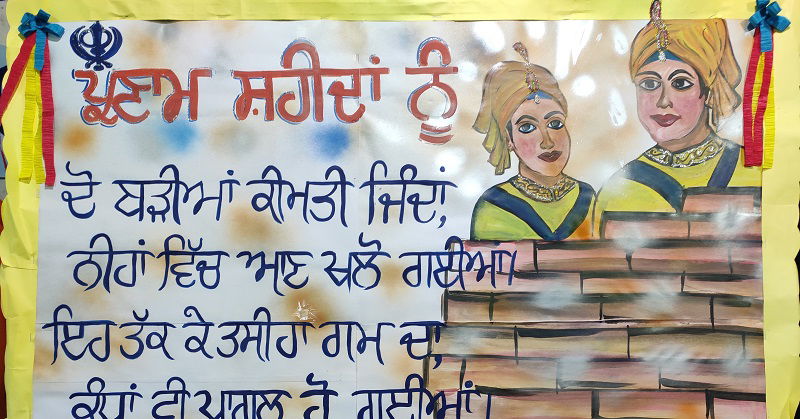 ਪ੍ਰਣਾਮ ਸ਼ਹੀਦਾਂ ਨੂੰ
ਦੋ ਬੜੀਆਂ ਕੀਮਤੀ ਜਿੰਦਾਂ,
ਨੀਹਾਂ ਵਿੱਚ ਆਣ ਖਲੋ ਗਈਆਂ।
ਇਹ ਤੱਕ ਕੇ ਤਸੀਹਾ ਗਮ ਦਾ,
ਕੰਧਾਂ ਵੀ ਪਾਗਲ ਹੋ ਗਈਆਂ।